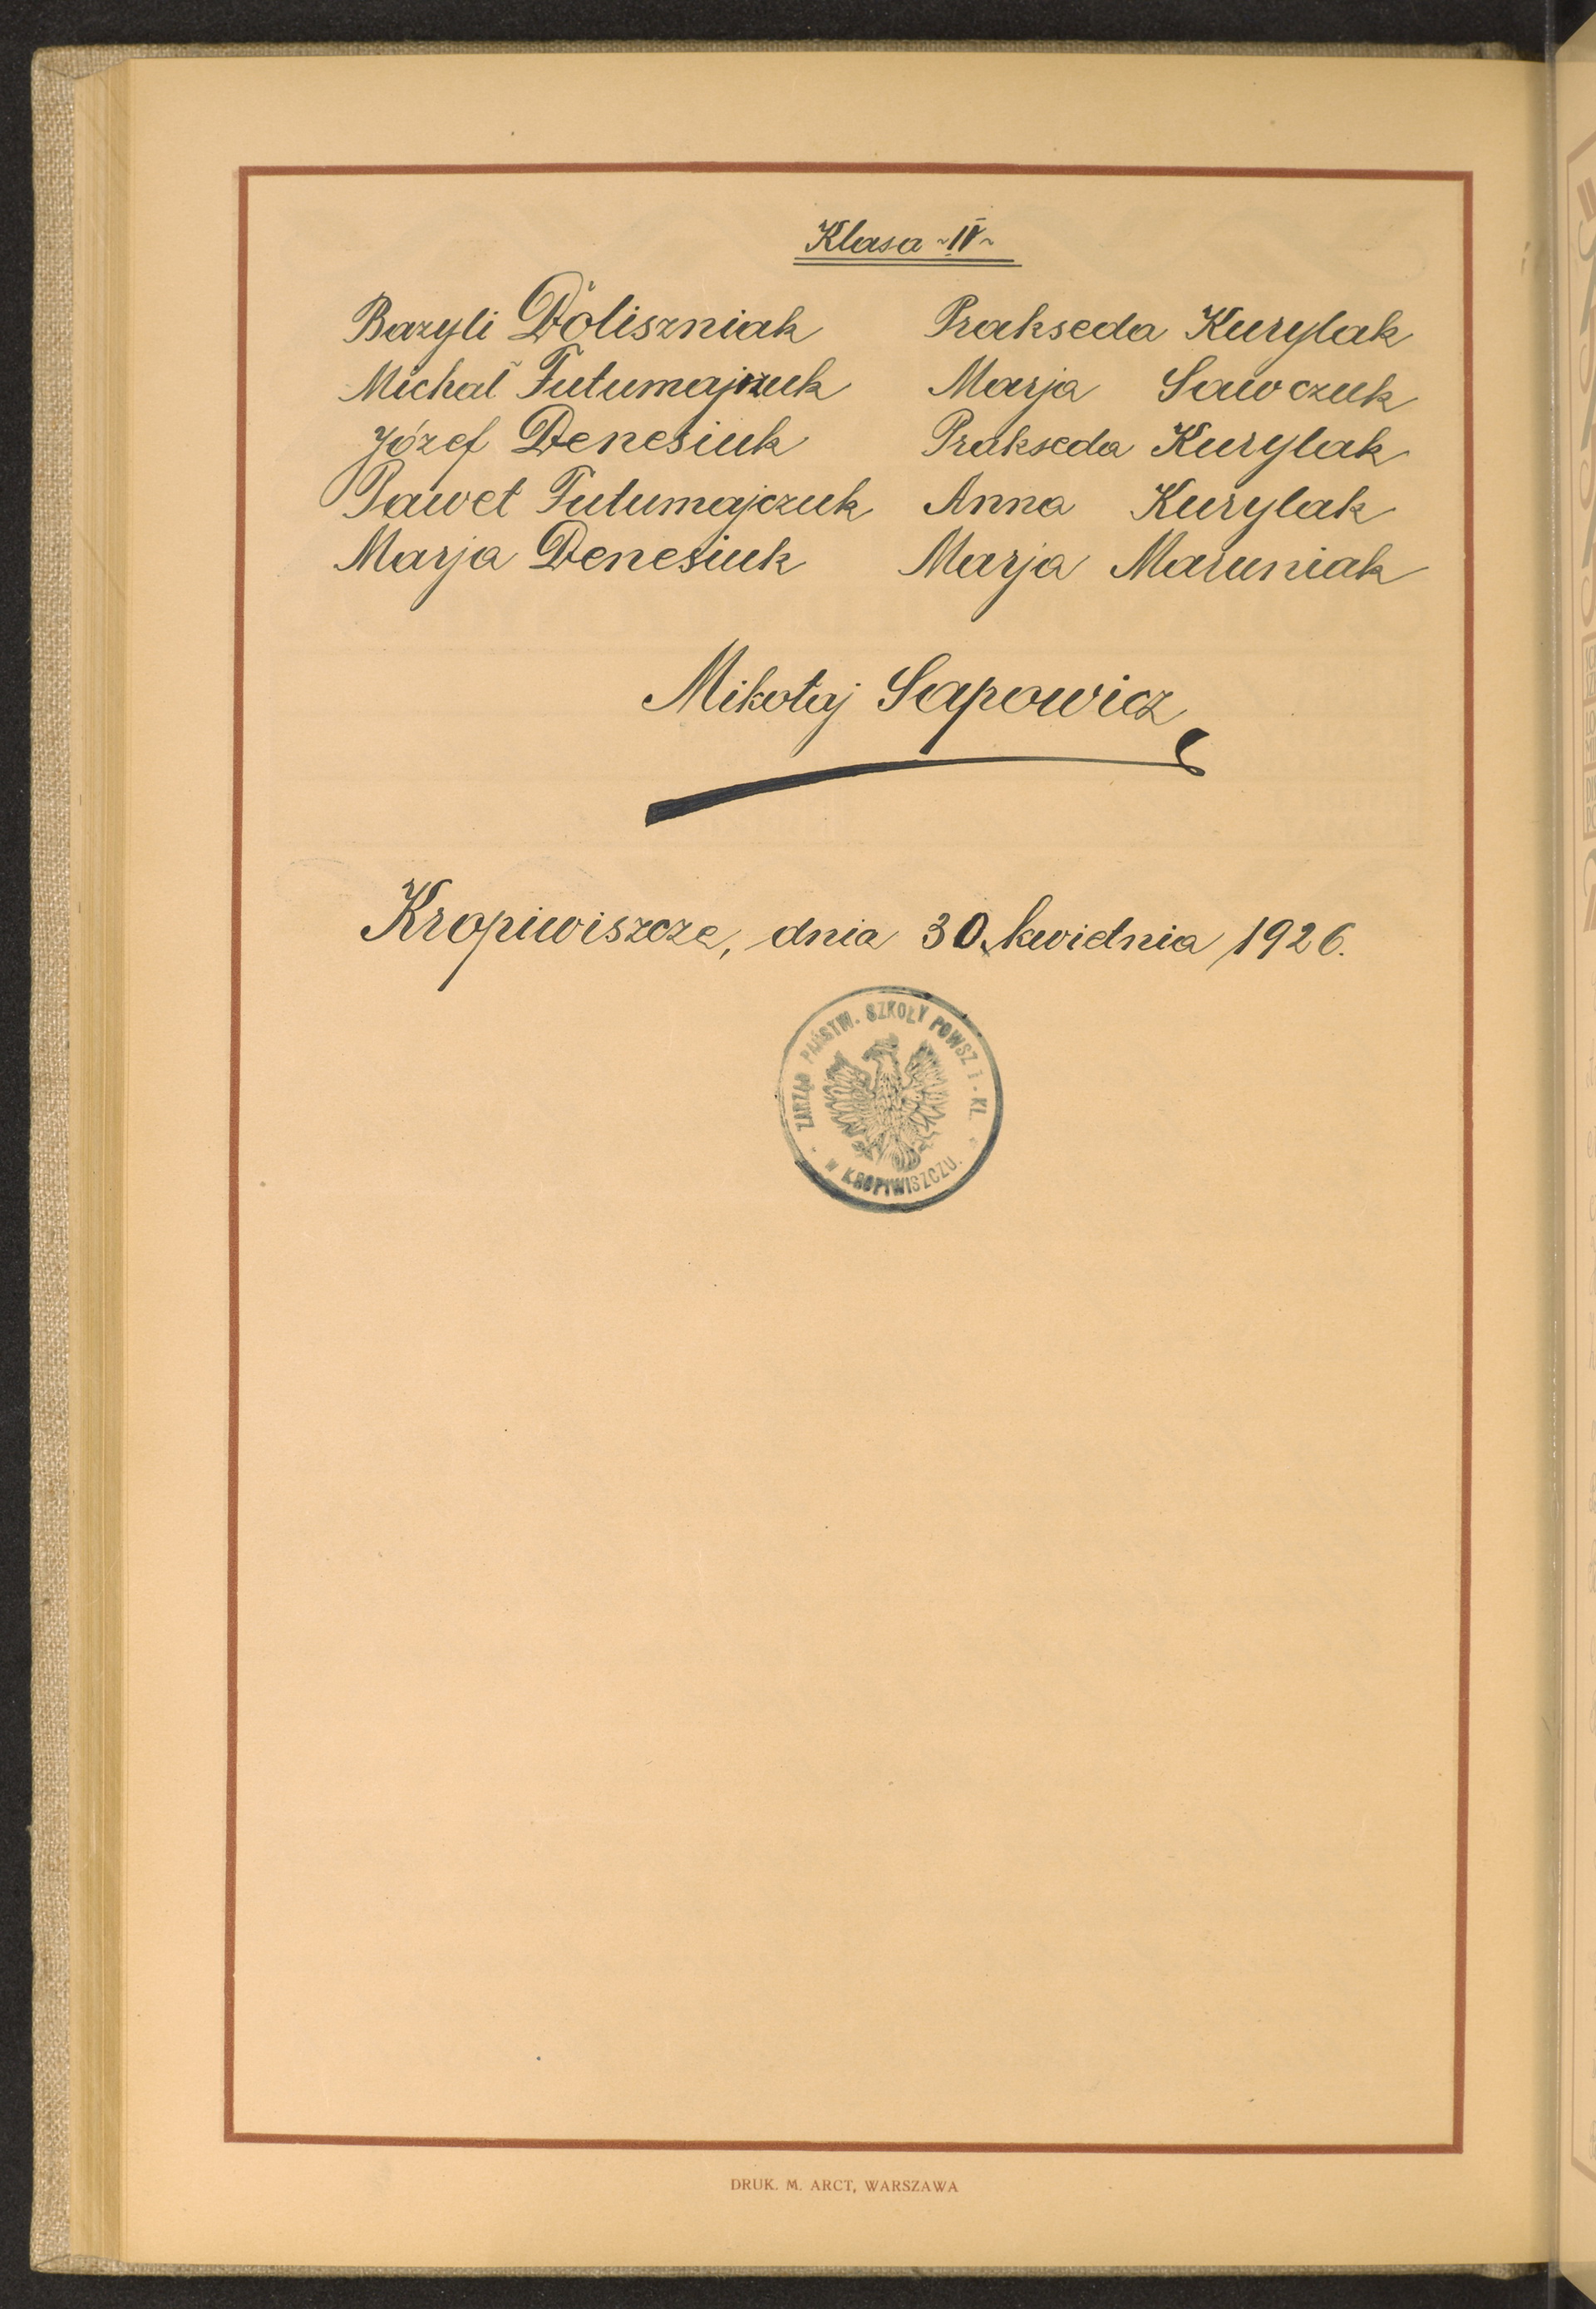 Klasa ~IV~
Bazyli Doliszniak
Michał Futumajczuk
Józef Denesiuk
Paweł Futumajczuk
Marja Denesiuk
Prakseda Kurylak
Marja Sawczuk
Prakseda Kurylak
Anna Kurylak
Marja Maruniak
Mikołaj Sapowicz
Kropiwiszcze, dnia 30. kwietnia 1926.
ZARZĄD PAŃSTW. SZKOŁY POWSZ 1 - KL.
W KROPIWISZCZU.
DRUK. M. ARCT, WARSZAWA